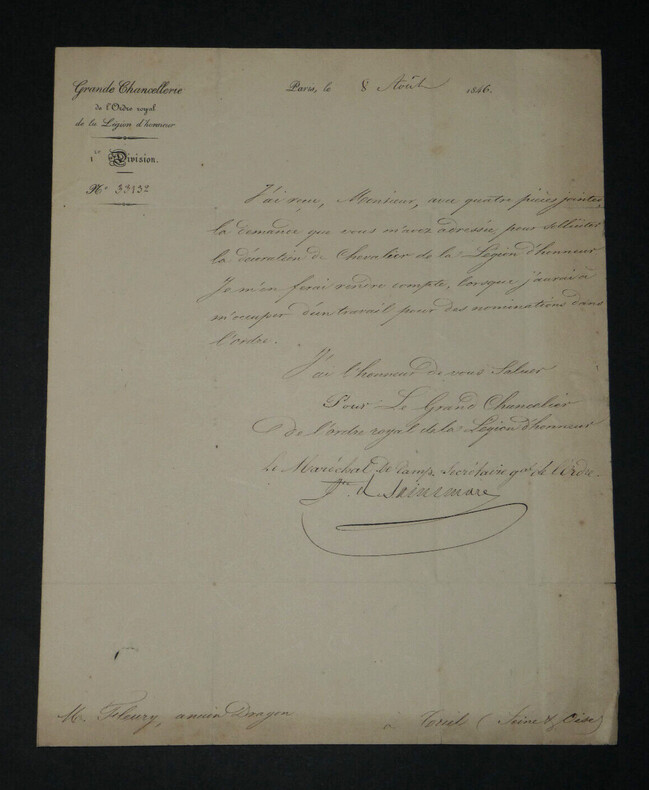 Grande Chancellerie
de l'Ordre royal
de la Légion d'honneur
1ère Division.
N° 33132
Paris, le 8 Août 1846.
J'ai reçu, Monsieur, avec quatre pièces jointes,
la demande que vous m'avez adressée pour solliciter
la décoration de Chevalier de la Légion d'honneur
Je m'en ferai rendre compte, lorsque j'aurai à
m'occuper d'un travail pour des nominations dans
l'ordre.
J'ai l'honneur de vous Saluer
Pour Le Grand Chancelier
de l'ordre royal de la Légion d'honneur
Le Maréchal de Camp, Secrétaire gal de l'Ordre.
Vte de Saint mare
M. Fleury, ancien Dragon
à (Seine & Oise)